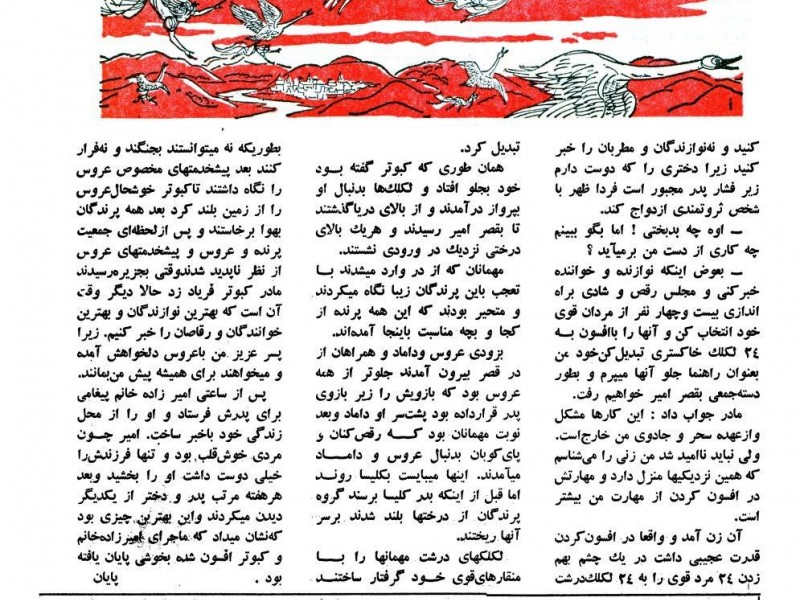 کنید و نه‌نوازندگان و مطربان را خبر
کنید زیرا دختری را که دوست دارم
زیر فشار پدر مجبور است فردا ظهر با
شخص ثروتمندی ازدواج کند.
ــ اوه چه بدبختی ! اما بگو ببینم
چه کاری از دست من برمیآید ؟
ــ بعوض اینکه نوازنده و خواننده
خبرکنی و مجلس رقص و شادی براه
اندازی بیست وچهار نفر از مردان قوی
خود انتخاب کن و آنها را باافسون بـه
۲۴ لکلک خاکستری تبدیل‌کن‌خود من
بعنوان راهنما جلو آنها میپرم و بطور
دسته‌جمعی بقصر امیر خواهیم رفت.
مادر جواب داد : این کارها مشکل
وازعهده سحر و جادوی من خارج‌است.
ولی نباید ناامید شد من زنی را می‌شناسم
که همین نزدیکیها منزل دارد و مهارتش
در افسون کردن از مهارت من بیشتر
است.
آن زن آمد و واقعا در افسون‌کردن
قدرت عجیبی داشت در یك چشم بهم
زدن ۲۴ مرد قوی را به ۲۴ لکلک‌درشت
تبدیل کرد.
همان طوری که کبوتر گفته بـود
خود بجلو افتاد و لکلک‌ها بدنبال او
بپرواز درآمدند و از بالای دریاگذشتند
تا بقصر امیر رسیدند و هریك بالای
درختی نزدیك در ورودی نشستند.
مهمانان که از در وارد میشدند بـا
تعجب باین پرندگان زیبا نگاه میکردند
و متحیر بودند که این همه پرنده از
کجا و بچه مناسبت باینجا آمده‌اند.
بزودی عروس وداماد و همراهان از
در قصر بیرون آمدند جلوتر از همه
عروس بود که بازویش را زیر بازوی
پدر قرارداده بود پشت‌سر او داماد وبعد
نوبت مهمانان بود کـه رقص‌کنان و
پای‌کوبان بدنبال عروس و دامـاد
میآمدند. اینها میبایست بکلیسا رونـد
اما قبل از اینکه بدر کلیسا برسند گروه
پرندگان از درختها بلند شدند برسر
آنها ریختند.
لکلکهای درشت مهمانها را بـا
منقارهای‌قوی خـود گرفتار ساختنـد
بطوریکه نه میتوانستند بجنگند و نه‌فرار
کنند بعد پیشخدمتهای مخصوص عروس
را نگاه داشتند تاکبوتر خوشحال‌عروس
را از زمین بلند کرد بعد همه پرندگان
بهوا برخاستند و پس ازلحظه‌ای جمعیت
پرنده و عروس و پیشخدمتهای عروس
از نظر ناپدید شدندوقتی بجزیره‌رسیدند
مادر کبوتر فریاد زد حالا دیگر وقت
آن است که بهترین نوازندگان و بهترین
خوانندگان و رقاصان را خبر کنیم. زیرا
پسر عزیز من باعروس دلخواهش آمده
و میخواهند برای همیشه پیش من‌بمانند.
پس از ساعتی امیر زاده خانم پیغامی
برای پدرش فرستاد و او را از محل
زندگی خود باخبر ساخت. امیر چـون
مردی خوش‌قلب بود و تنها فرزندش‌را
خیلی دوست داشت او را بخشید وبعد
هرهفته مرتب پدر و دختر از یکدیگر
دیدن میکردند واین بهترین چیزی بود
که‌نشان میداد که ماجرای امیرزاده‌خانم
و کبوتر افسون شده بخوشی پایان یافته
بود . پایان